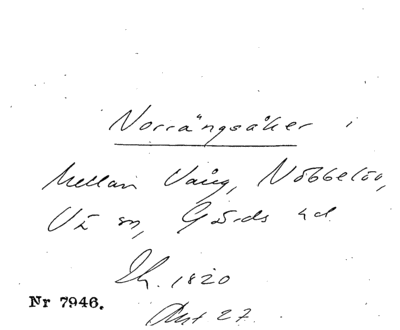 Norrängsåker i
Mellan Vång, Nöbbelöv,
Vä sn, Gärds hd
Sk. 1820
Akt 27.
Nr 7946.